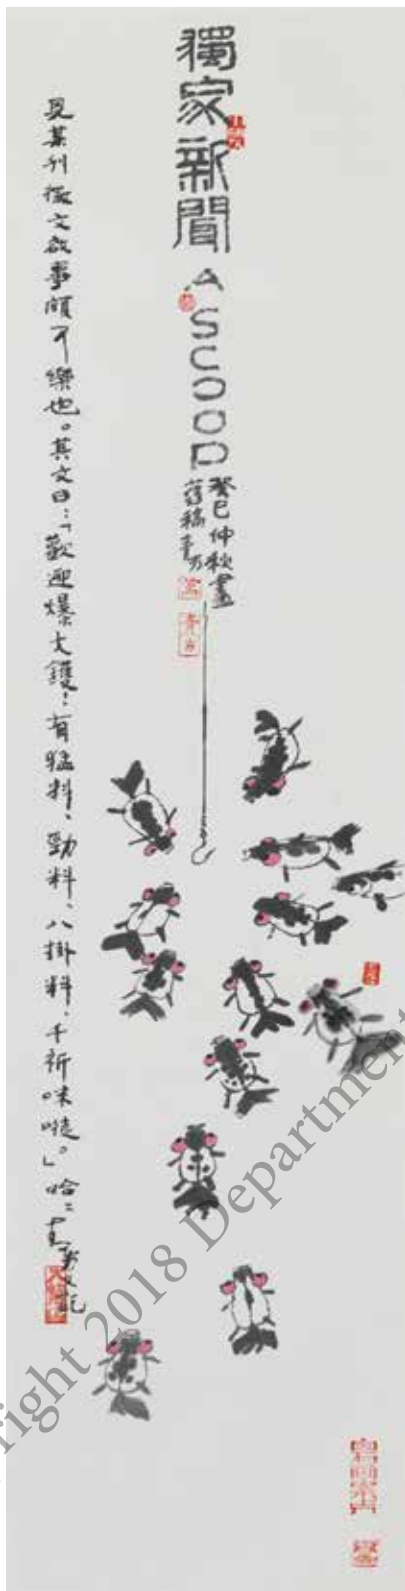 獨家新聞
A SCOOP
癸巳仲秋畫
舊稿
見某刊徵文啟事頗可樂也。其文曰：「歡迎爆大鑊！有猛料、勁料、八掛料，千祈咪嘥。」哈哈 又記
right 2018 Department